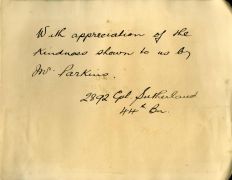 With appreciation of the
kindness shown to us by
Mr Parkins.
2892 Cpl Sutherland
44th Bn.